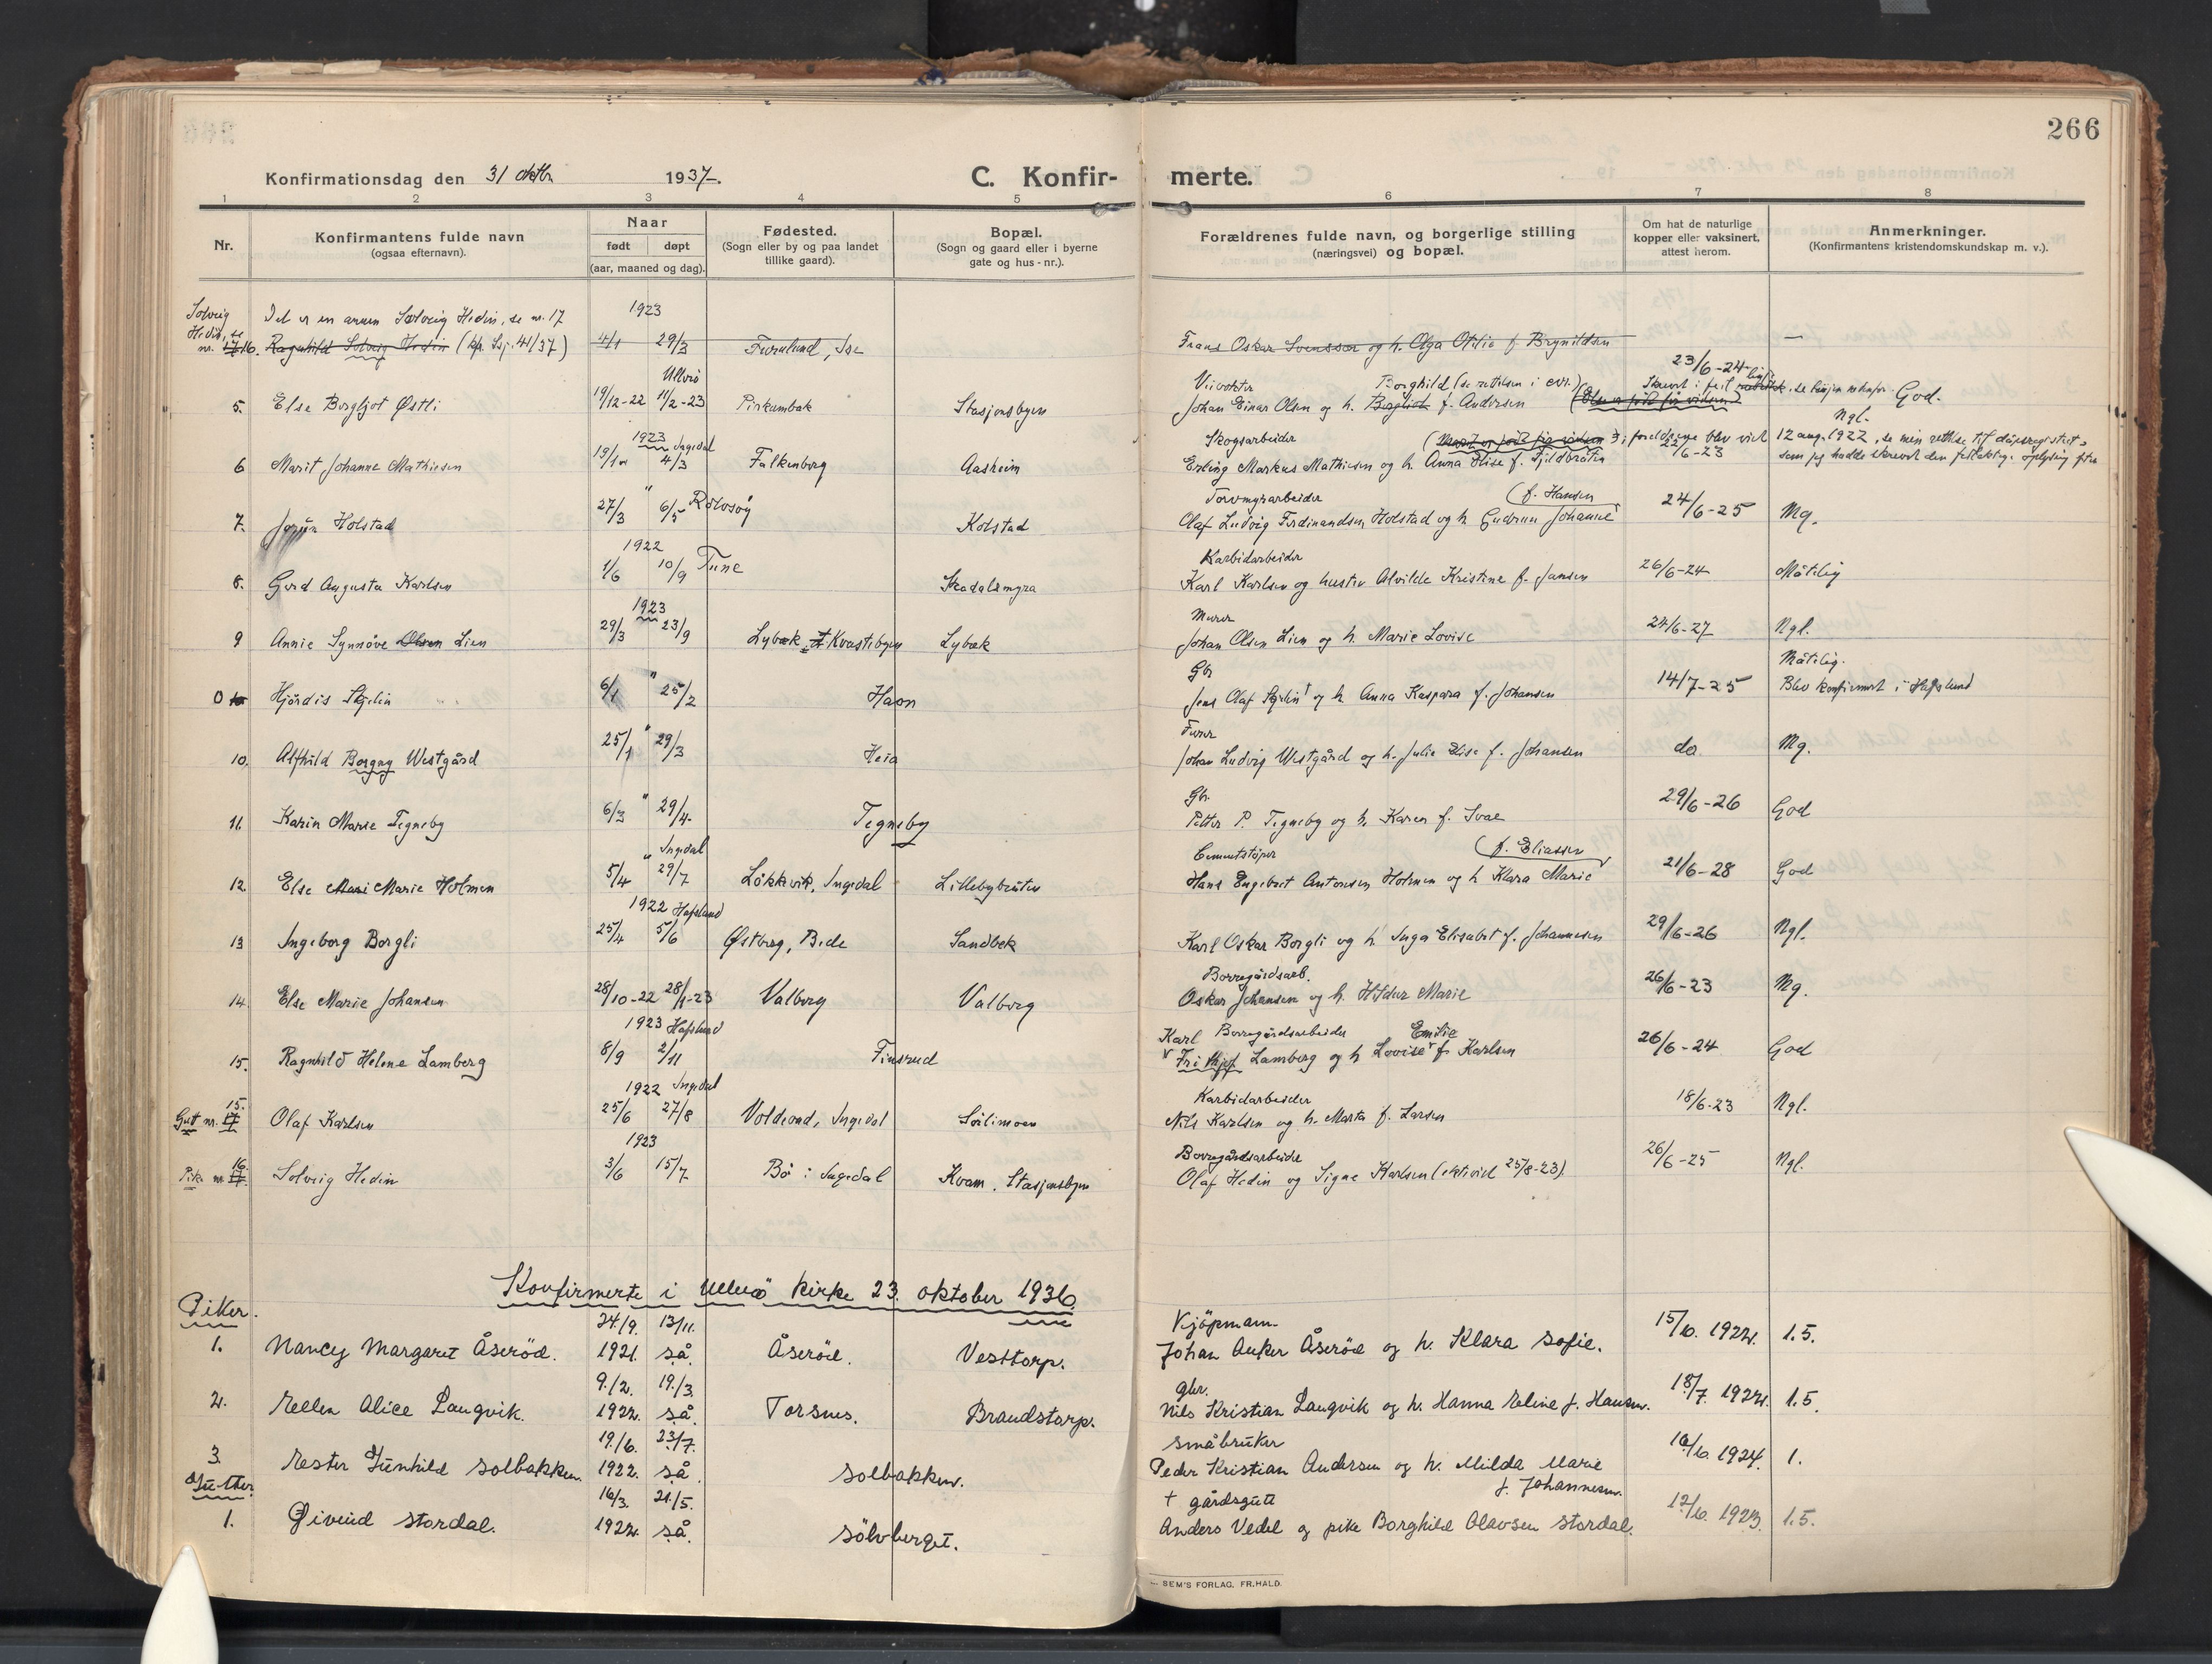 266
Konfirmationsdag den 31 oktbr. 1937.
C. Konfir-merte.
1 2 3 4 5 6 7 8
Nr.
Konfirmantens fulde navn
(ogsaa efternavn).
Naar
født døpt
(aar, maaned og dag).
Fødested.
(Sogn eller by og paa landet
tillike gaard).
Bopæl.
(Sogn og gaard eller i byerne
gate og hus-nr.).
Forældrenes fulde navn, og borgerlige stilling
(næringsvei) og bopæl.
Om hat de naturlige
kopper eller vaksinert,
attest herom.
Anmerkninger.
(Konfirmantens kristendomskundskap m. v.).
Solveig Hedin, se nr. 17
Det er en annen Solveig Hedin, se nr. 17 1923
16. Ragnhild Solveig Hedin (kfr. Lsj. 41/37) 4/1 29/3 Furulund, Ise Frans Oskar Svensson og h. Olga Otilie f. Brynildsen —
Ullerø Viivokter Borghild (se rettelsen i evr.) 23/6-24
5. Else Bergljot Østli 19/12-22 11/2-23 Pirkambæk Stasjonsbyen Johan Einar Olsen og h. Bergliot f. Andersen God.
1923 Ingedal Skogsarbeider foreldrene blev viet 12 aug. 1922, se min rettelse til døpsregistret, Ngl.
6 Marit Johanne Mathisen 19/1 4/3 Falkenborg Aasheim Erling Markus Mathisen og h. Anna Elise f. Fjildbråten 22/6-23
" Rolvsøy Torvmyrarbeider (f. Hansen
7. Jorun Holstad 27/3 6/5 Kolstad Olaf Ludvig Ferdinandsen Holstad og h Gudrun Johanne 24/6-25 Mg.
1922 Tune Karbidarbeider
8. Gerd Augusta Karlsen 1/6 10/9 Skadalsmyra Karl Karlsen og hustru Alvilde Kristine f. Jansen 26/6-24 Måtelig
1923 Murer
9 Annie Synnöve Olsen Lien 29/3 23/9 Lybæk, Kvastebyen Lybæk Johan Olsen Lien og h. Marie Lovise 24/6-27 Ngl.
" Gbr Måtelig.
0 10 Hjördis Skjelin 6/1 25/2 Haon Jens Olaf Skjelin og h Anna Kaspara f. Johansen 14/7-25 Blev konfirmert i Hafslund
" Furer
10. Alfhild Borgny Westgård 25/1 29/3 Heia Johan Ludvig Westgård og h. Julie Elise f. Johansen do Mg.
" Gbr.
11. Karin Marie Tegneby 6/3 29/4. Tegneby Petter P. Tegneby og h. Karen f. Ivae 29/6-26 God
" Ingedal Cementstöper (f. Eliassen
12. Else Marie Holmen 5/4 29/7 Lökkevik, Ingedal Lillebybråten Hans Engebret Antonsen Holmen og h Klara Marie 21/6-28 God
1922 Hafslund
13 Ingeborg Borgli 25/4 5/6 Østberg, Bede Sandbek Karl Oskar Borgli og h Inga Elisabet f. Johannesen 29/6-26 Ngl.
Borregårdsarb.
14. Else Marie Johansen 28/10-22 28/1-23 Valberg Valberg Oskar Johansen og h. Hildur Marie 26/6-23 Mg.
1923 Hafslund Karl Borregårdsarbeider Emilie
15. Ragnhild Helene Lamberg 8/9 2/11 Finsrud Frithjof Lamberg og h Lovise f. Karlsen 26/6-24 God
1922 Ingedal Karbidarbeider
Gut nr. 15. Olaf Karlsen 25/6 27/8 Voldemd, Ingedal Sölimoen Nils Karlsen og h. Marta f. Larsen 18/6-23 Ngl.
1923 Borregårdsarbeider
Pike nr. 16. Solveig Hedin 3/6 15/7 Bö i Ingedal Kvam, Stasjonsbyen Olaf Hedin og Signe Karlsen (ektevied 25/8-23) 26/6-25 Ngl.
Konfirmerte i Ullerö kirke 23. oktober 1936
Piker.
24/9. 13/11. Kjöpmann
1. Nancy Margaret Åseröd. 1921. s.å. Åseröd. Vesttorp. Johan Anker Åseröd og h. Klara Sofie. 15/6. 1924. 1.5.
9/2. 19/3 gbr.
2. Ellen Alice Langvik. 1922. s.å. Torsnes. Brandstorp. Nils Kristian Langvik og h. Hanna Eline f. Hansen. 18/7 1924. 1.5.
19/6. 23/7. småbruker
3. Ester Gunhild Solbakken. 1922. s.å. Solbakken. Peder Kristian Andersen og h. Milda Marie 16/6. 1924. 1.
f. Johannesen.
Gutter.
16/3. 21/5. † gårdsgutt
1. Øivind Stordal. 1922. s.å. Sölvberget. Anders Vedel og pike Borghild Olavsen Stordal. 12/6. 1923. 1.5.
— SEM'S FORLAG, FR.HALD.